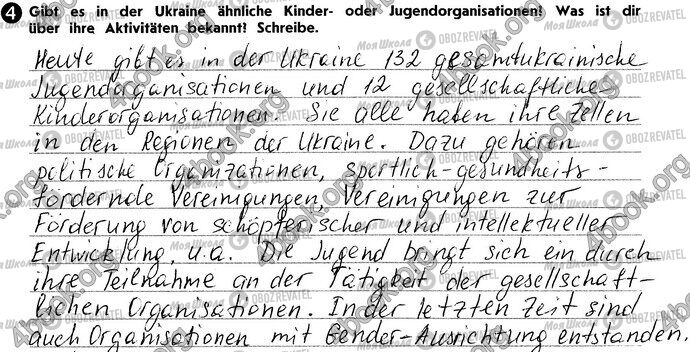 4 Gibt es in der Ukraine ähnliche Kinder- oder Jugendorganisationen? Was ist dir
über ihre Aktivitäten bekannt? Schreibe.
Heute gibt es in der Ukraine 132 gesamtukrainische
Jugendorganisationen und 12 gesellschaftliche
Kinderorganisationen. Sie alle haben ihre Zellen
in den Regionen der Ukraine. Dazu gehören
politische Organizationen, sportlich-gesundheits-
fördernde Vereinigungen, Vereinigungen zur
Förderung von schöpferischer und intellektueller
Entwicklung, u.a. Die Jugend bringt sich ein durch
ihre Teilnahme an der Tätigkeit der gesellschaft-
lichen Organisationen. In der letzten Zeit sind
auch Organisationen mit Gender-Ausrichtung entstanden.